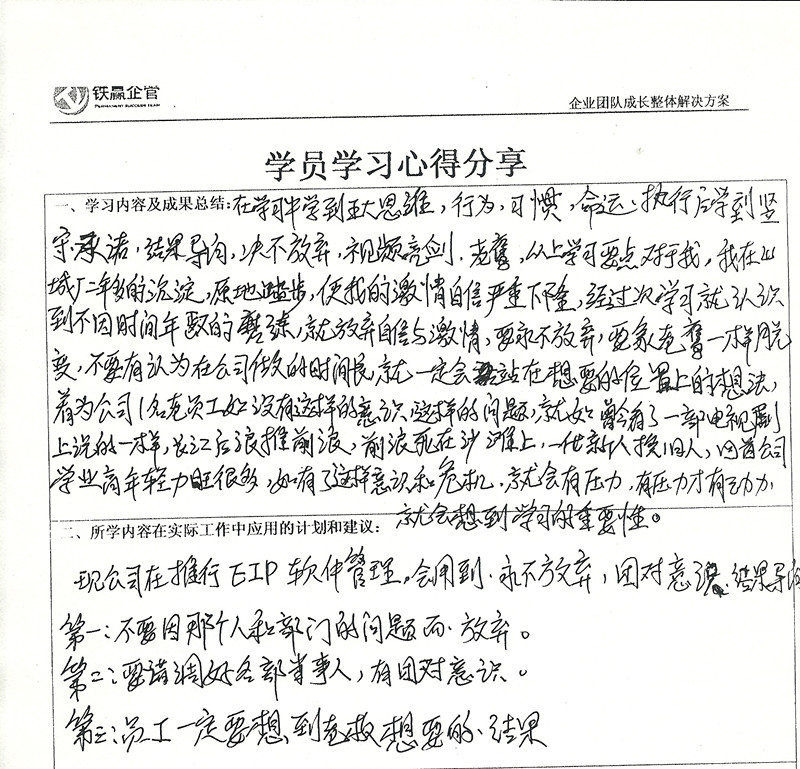 铁赢企官
PERMANENT SUCCESS TEAM
企业团队成长整体解决方案
学员学习心得分享
一、学习内容及成果总结:在学习中学到五大思维,行为,习惯,命运、执行后学到坚
守承诺,结果导向,决不放弃,视频亮剑.老鹰,以上学习要点对于我,我在山
城厂二年多的沉淀,原地踏步,使我的激情自信严重下降,经过次学习就认识
到不因时间年数的磨练,就放弃自信与激情,要永不放弃,要象老鹰一样脱
变,不要有认为在公司做久的时间长,就一定会站在想要的位置上的想法,
着为公司1名老员工如没有这样的意识,这样的问题,就如曾看了一部电视剧
上说的一样,长江后浪推前浪,前浪死在沙滩上,一代新人换旧人,因首公司
学业高年轻力旺很多,如有了这样意识和危机,就会有压力,有压力才有动力
就会想到学习的重要性。
二、所学内容在实际工作中应用的计划和建议:
现公司在推行EIP软件管理。会用到.永不放弃,团对意识.结果导向
第一:不要因那个人和部门的问题而放弃。
第二:要调好各部当事人,有团对意识。
第三:员工一定要想到老板想要的结果